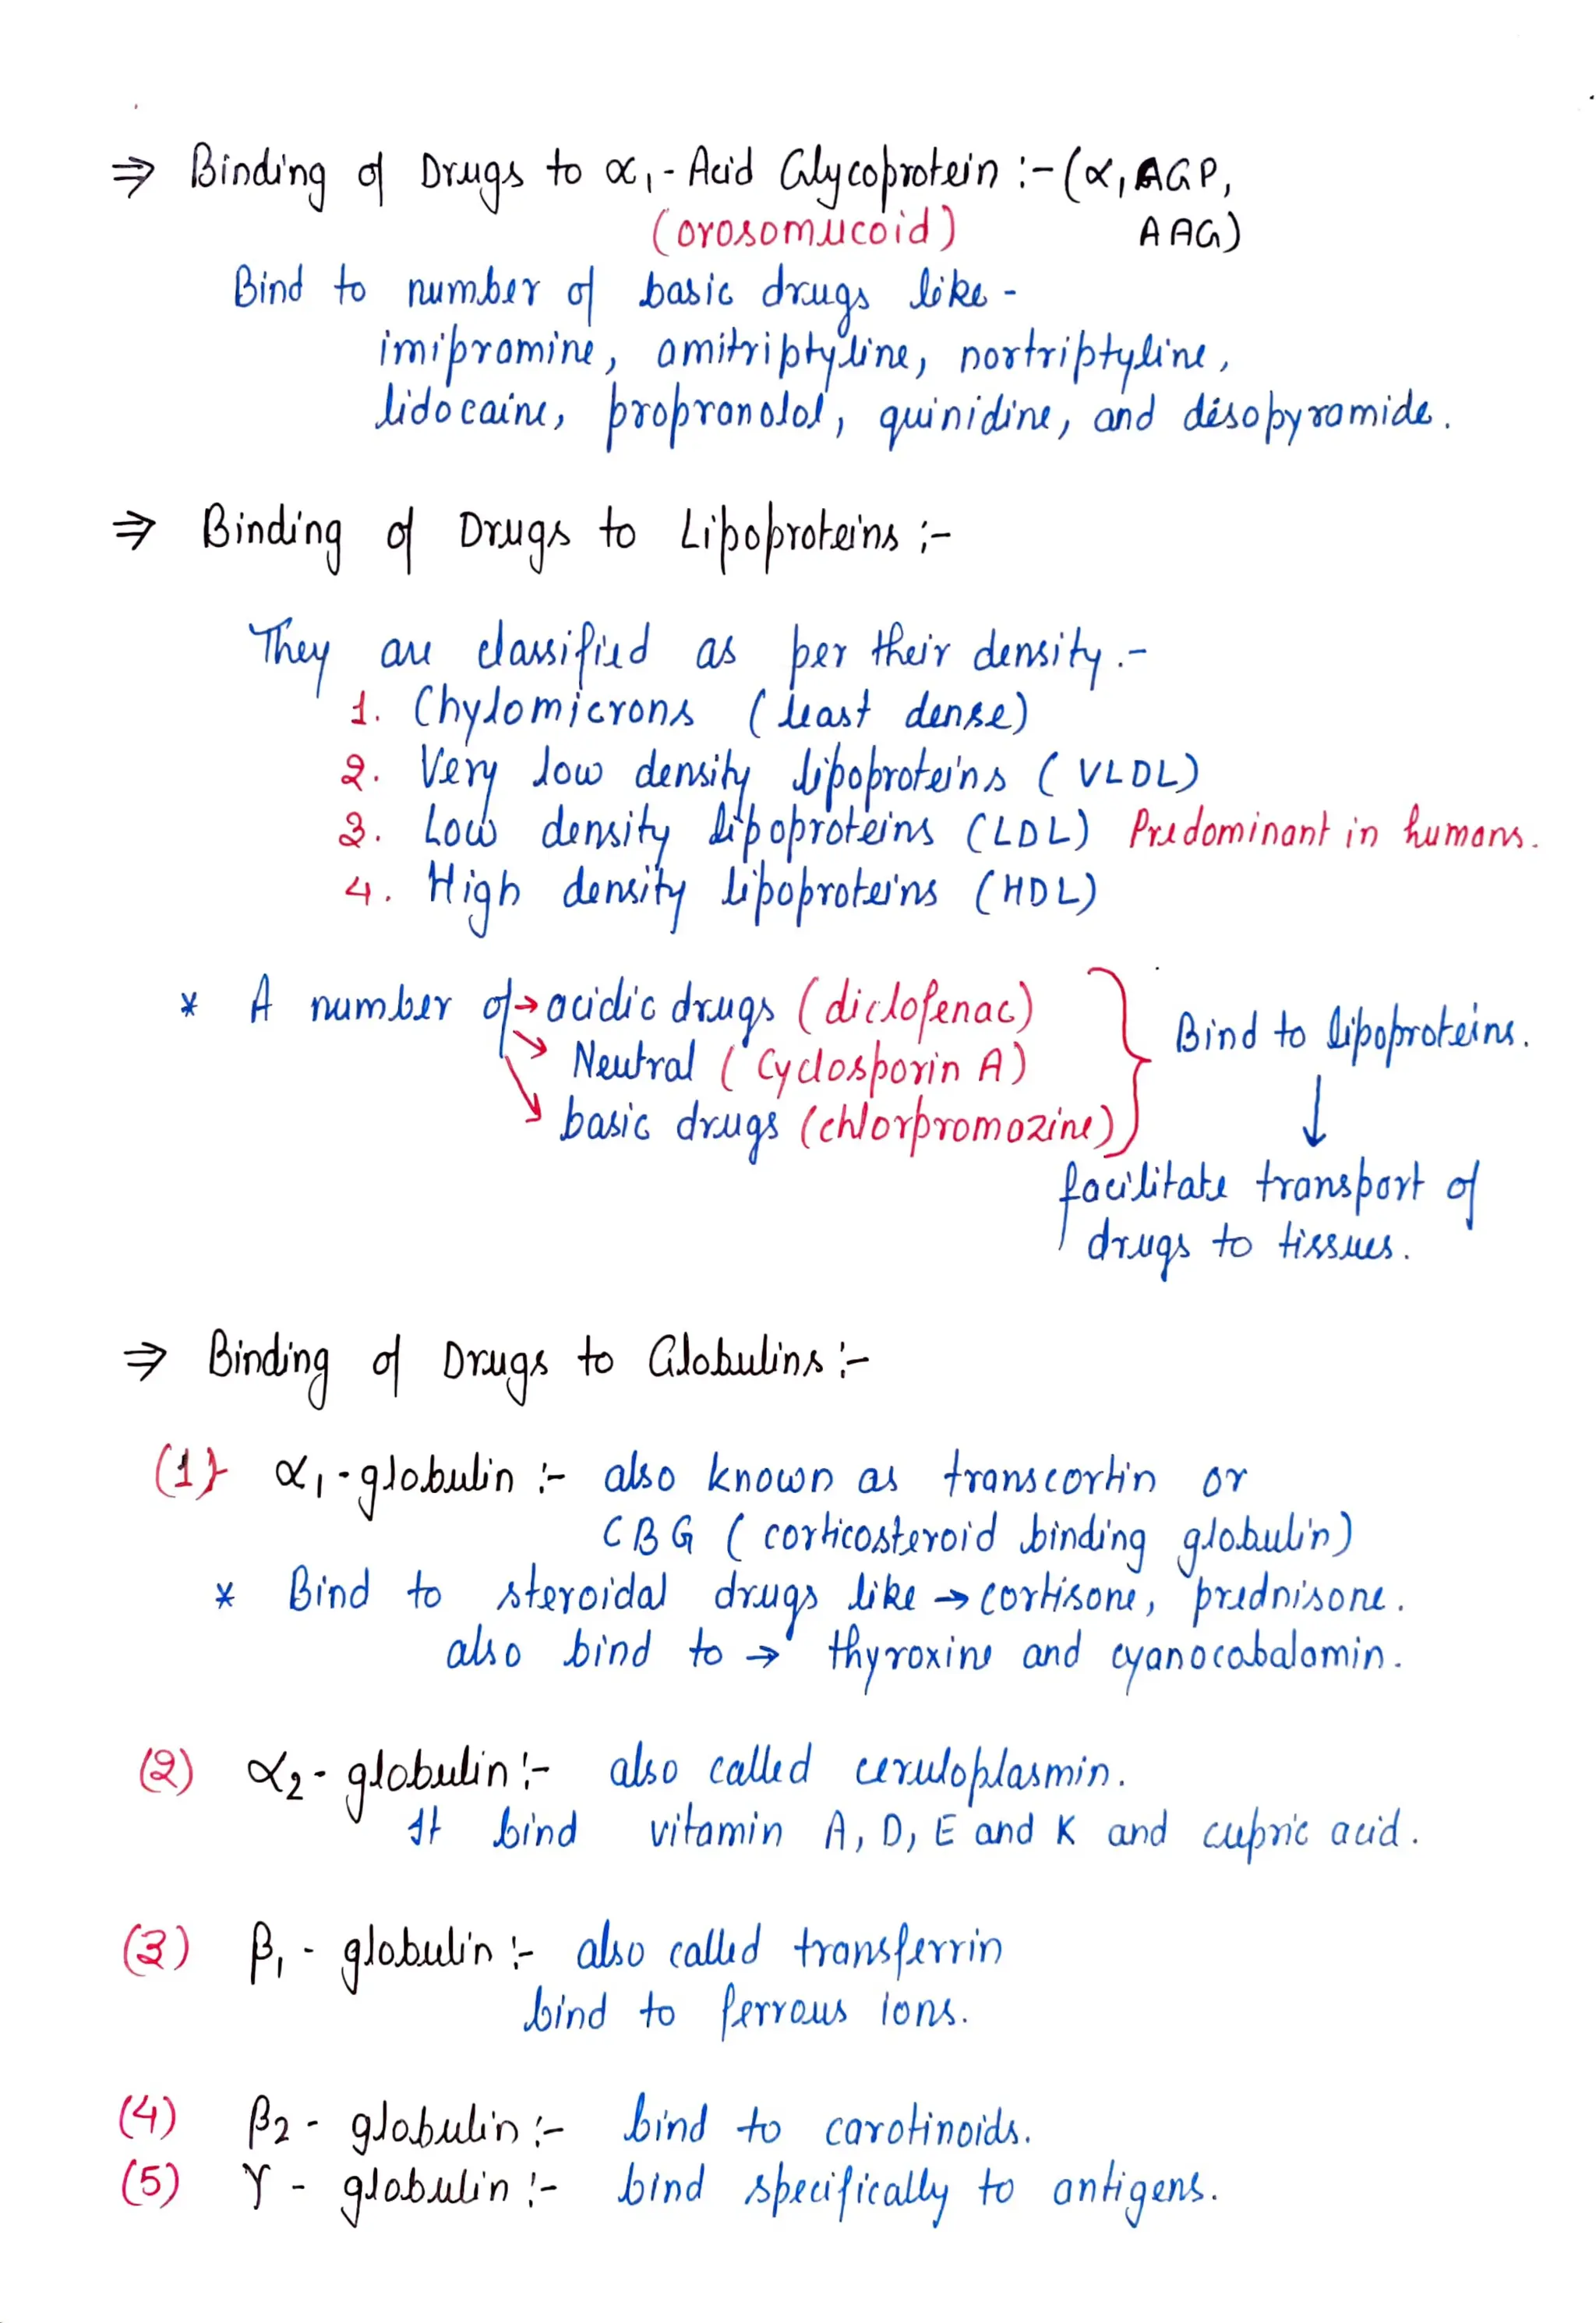 ⇒ Binding of Drugs to α₁-Acid Glycoprotein :- (α₁AGP,
(orosomucoid) AAG)
Bind to number of basic drugs like -
imipramine, amitriptyline, nortriptyline,
lidocaine, propranolol, quinidine, and disopyramide.
⇒ Binding of Drugs to Lipoproteins :-
They are classified as per their density.-
1. Chylomicrons (least dense)
2. Very low density lipoproteins (VLDL)
3. Low density lipoproteins (LDL) Predominant in humans.
4. High density lipoproteins (HDL)
* A number of → acidic drugs (diclofenac)
Neutral (Cyclosporin A)
basic drugs (chlorpromazine)
Bind to lipoproteins.
↓
facilitate transport of
drugs to tissues.
⇒ Binding of Drugs to Globulins :-
(1) α₁-globulin :- also known as transcortin or
CBG (corticosteroid binding globulin)
* Bind to steroidal drugs like → cortisone, prednisone.
also bind to → thyroxine and cyanocobalamin.
(2) α₂-globulin :- also called ceruloplasmin.
It bind vitamin A, D, E and K and cupric acid.
(3) β₁-globulin :- also called transferrin
bind to ferrous ions.
(4) β₂-globulin :- bind to carotinoids.
(5) γ-globulin :- bind specifically to antigens.